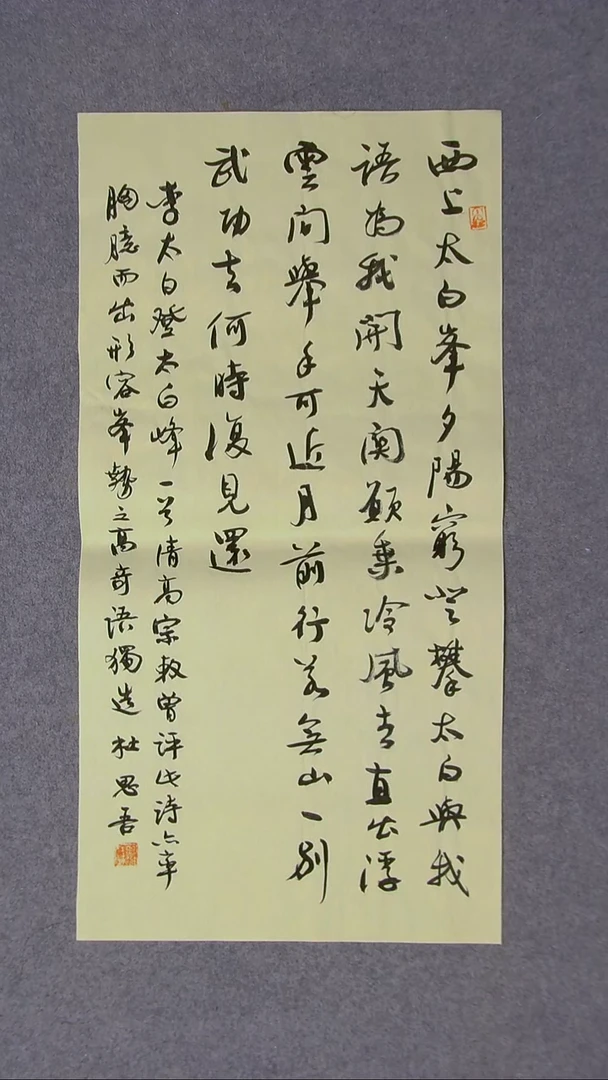 西上太白峯夕陽窮登攀太白與我
語為我開天關願乘冷風去直出浮
雲間舉手可近月前行若無山一別
武功去何時復見還
李太白登太白峰一首清高宗敕曾評此詩亦率
胸臆而出形容峯勢之高奇語獨造 杜思吾